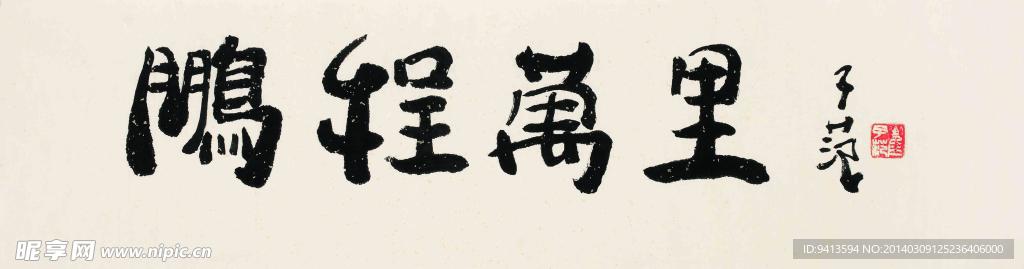 鵬程萬里
子范
昵享网 www.nipic.cn
ID:9413594 NO:20140309125236406000